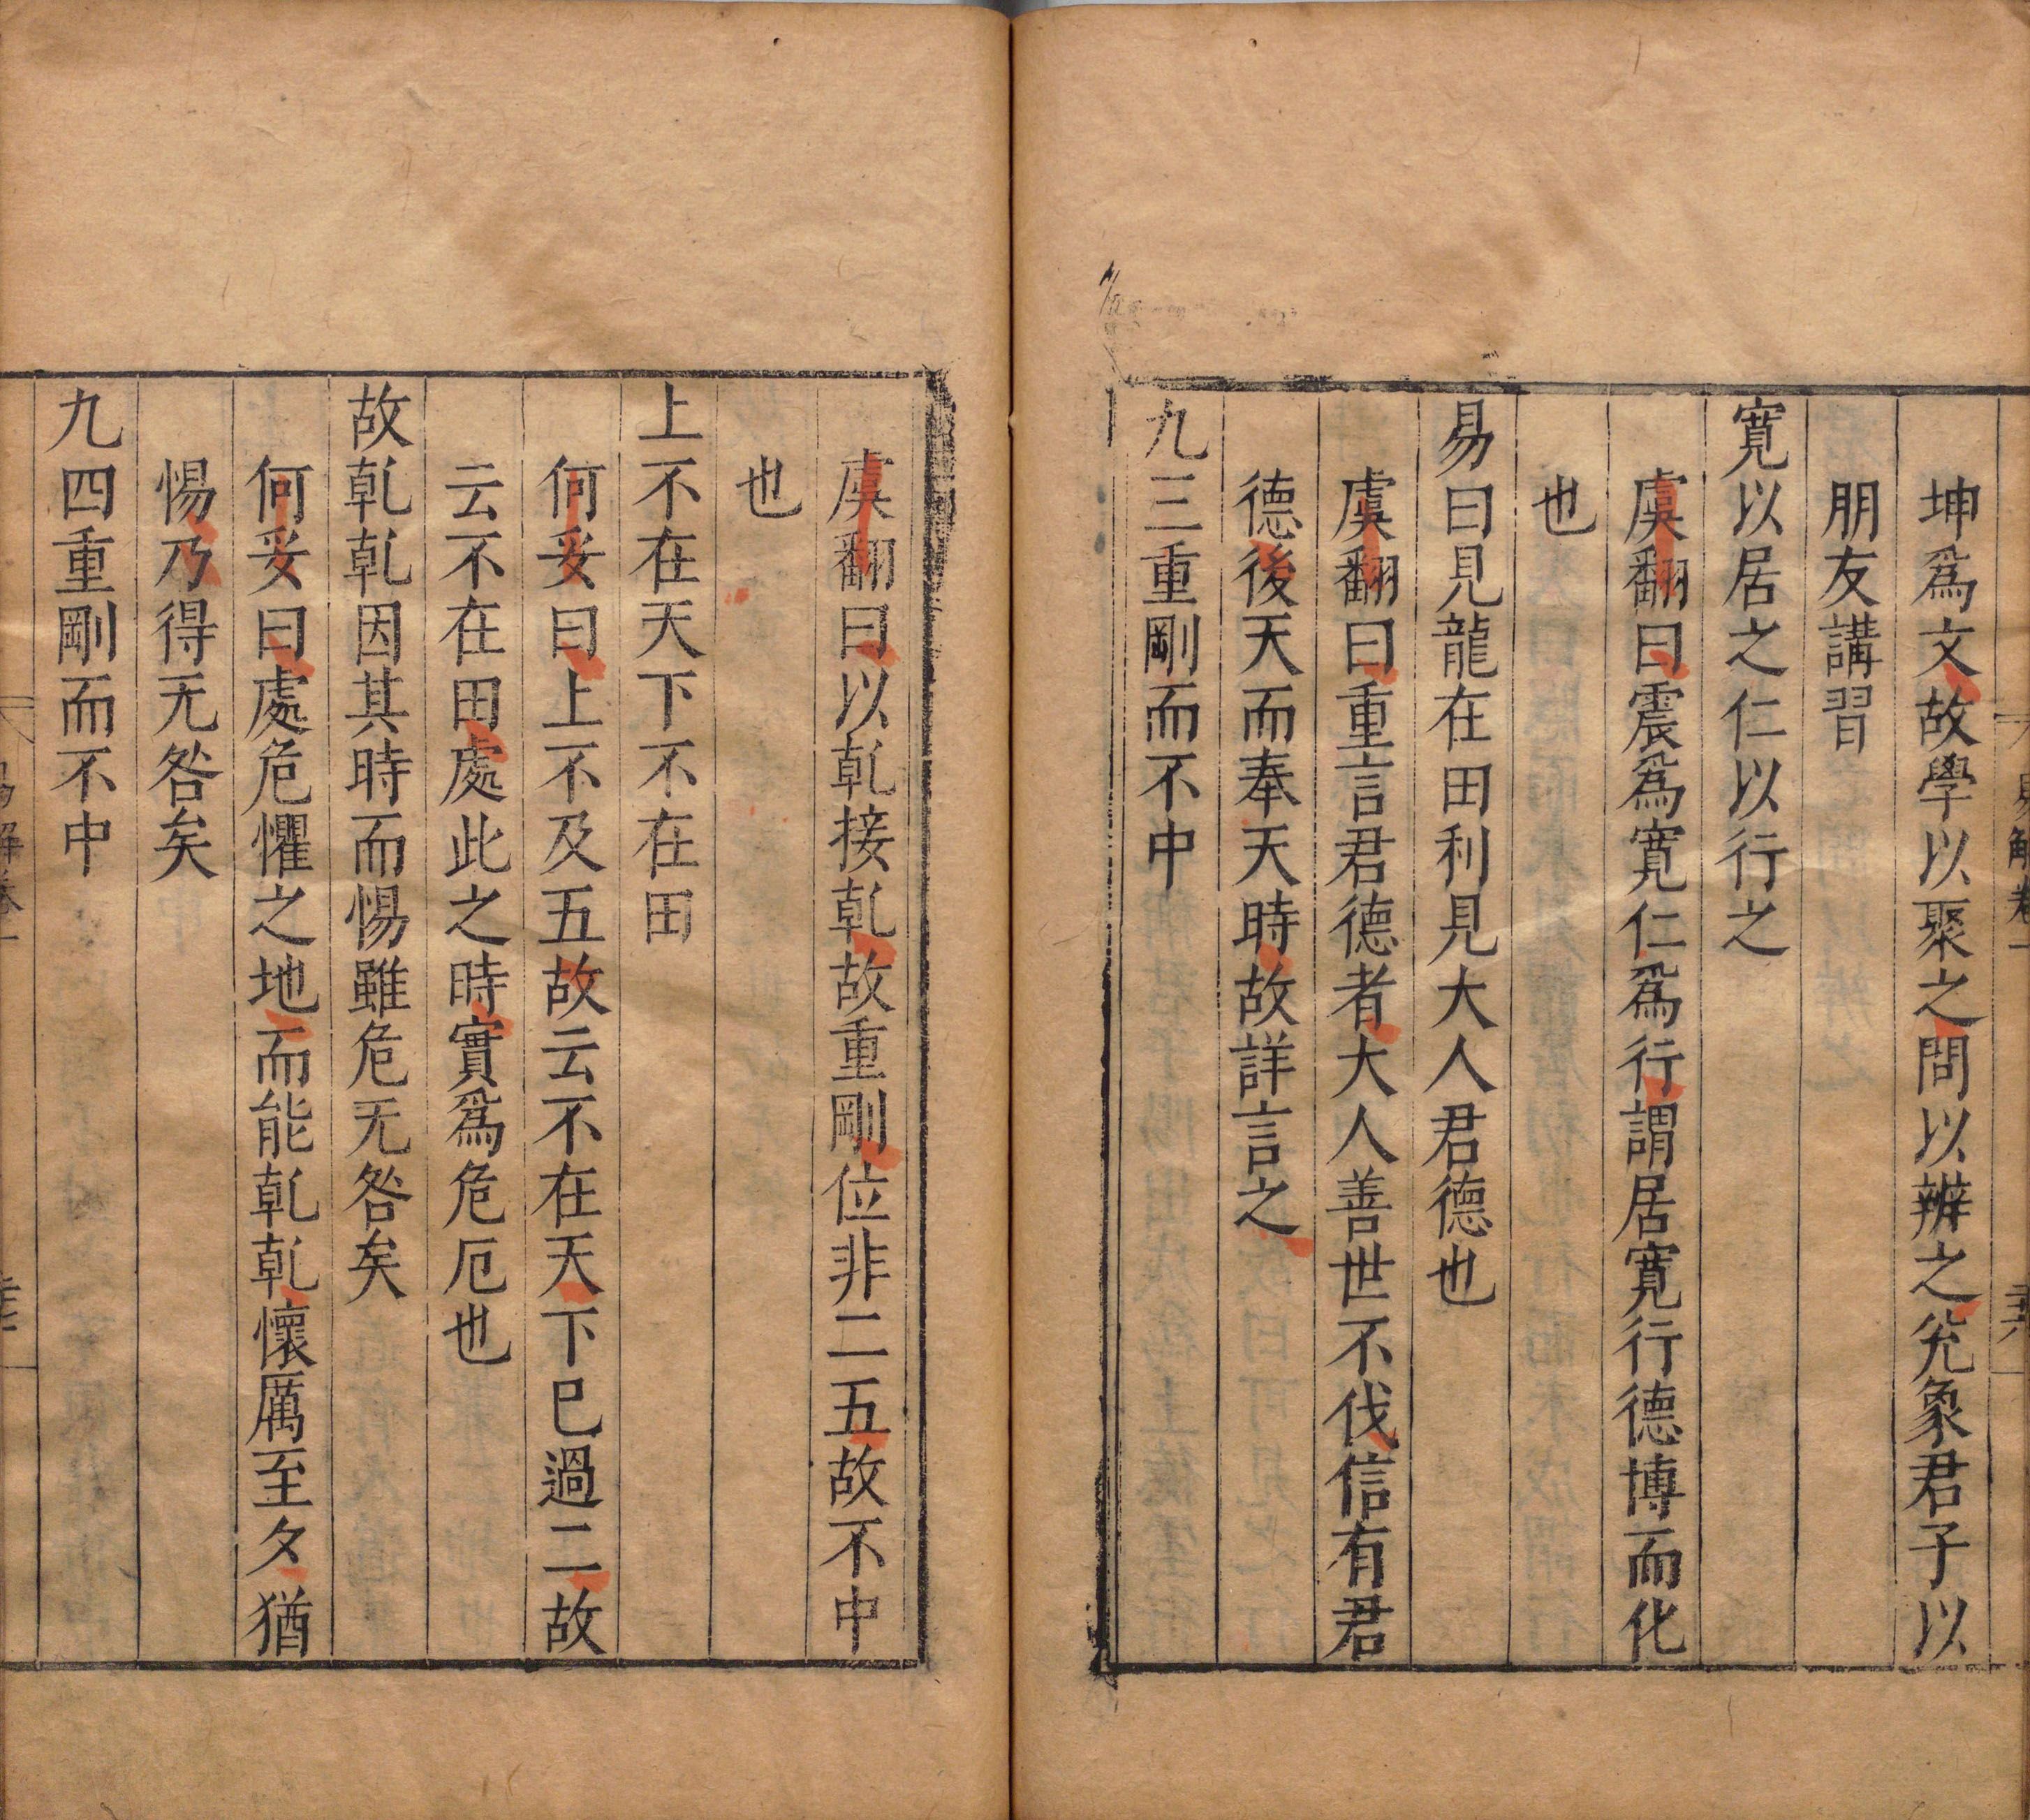 坤爲文故學以聚之問以辨之兊象君子以
朋友講習
寛以居之仁以行之
虞翻曰震爲寛仁爲行謂居寛行德博而化
也
易曰見龍在田利見大人君德也
虞翻曰重言君德者大人善世不伐信有君
德後天而奉天時故詳言之
九三重剛而不中
虞翻曰以乹接乹故重剛位非二五故不中
也
上不在天下不在田
何妥曰上不及五故云不在天下巳過二故
云不在田處此之時實爲危厄也
故乹乹因其時而惕雖危无咎矣
何妥曰處危懼之地而能乹乹懷厲至夕猶
惕乃得无咎矣
九四重剛而不中